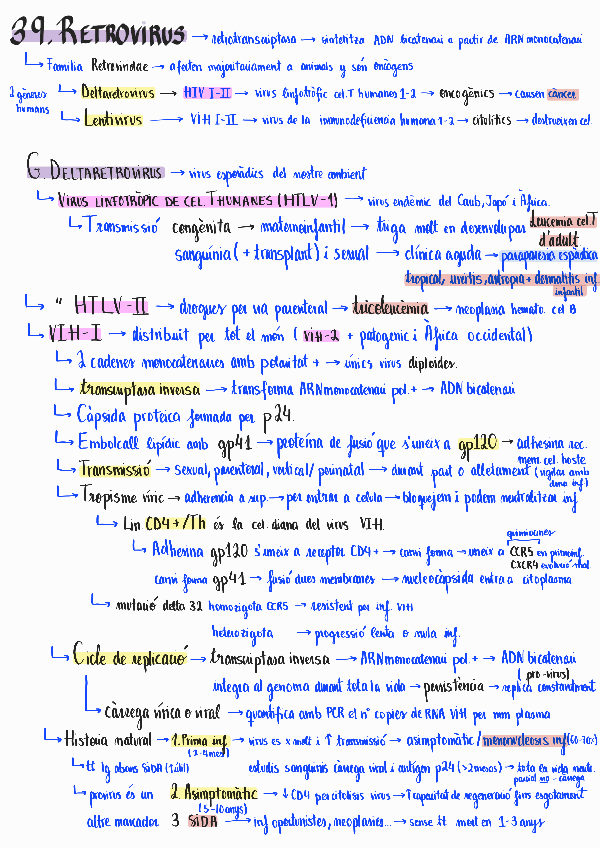 39. RETROVIRUS → retrotranscriptasa → sintetitza ADN bicatenari a partir de ARN monocatenari
↳ Família Retroviridae → afecten majoritàriament a animals y són oncògens
2 gèneres humans
↳ Deltaretrovirus → HTLV I-II → virus linfotròfic cel. T humanes 1-2 → oncogènics → causen càncer
↳ Lentivirus → VIH I-II → virus de la immunodeficiencia humana 1-2 → citolítics → destrueixen cel.
G. DELTARETROVIRUS → virus esporàdics del nostre ambient
↳ VIRUS LINFOTRÒPIC DE CEL. T HUMANES (HTLV-1) → virus endèmic del Carib, Japó i Àfrica.
↳ Transmissió congènita → maternoinfantil → triga molt en desenvolupar leucemia cel. T d'adult
sanguínia (+ transplant) i sexual → clínica aguda → paraparesia espàstica tropical, uveitis, artropia + dermatitis inf infantil
↳ " HTLV-II → drogues per via parenteral → tricoleucèmia → neoplasia hemato. cel B
↳ VIH-I → distribuit per tot el món (VIH-2 + patogenic i Àfrica occidental)
↳ 2 cadenes monocatenaries amb polaritat + → únics virus diploides.
↳ transcriptasa inversa → transforma ARN monocatenari pol.+ → ADN bicatenari
↳ Càpsida protèica formada per p24.
↳ Embolcall lipídic amb gp41 → proteína de fusió que s'uneix a gp120 → adhesina rec. mem. cel. hoste
↳ Transmissió → sexual, parenteral, vertical/perinatal → durant part o alletament (vigilar amb dona inf)
↳ Tropisme víric → adherencia a sup. → per entrar a celula → bloquejem i podem neutralitzar inf
↳ Lin CD4+/Th és la cel. diana del virus VIH.
quimiocines
↳ Adhesina gp120 s'uneix a receptor CD4+ → canvi forma → uneix a CCR5 en priminf. CXCR4 evolució + tard
canvi forma gp41 → fusió dues membranes → nucleocàpsida entra a citoplasma
↳ mutació delta 32 homozigota CCR5 → resistent per inf. VIH
heterozigota → progressió lenta o nula inf.
↳ Cicle de replicació → transcriptasa inversa → ARN monocatenari pol.+ → ADN bicatenari
(pro-virus)
integra al genoma durant tota la vida → persistència → replica constantment
↳ càrrega vírica o viral → quantifica amb PCR el nº copies de RNA VIH per mm plasma
↳ Historia natural → 1. Prima inf → virus es x molt i ↑ transmissió → asimptomàtic/mononucleosis inf (60-70%)
(2-4 mesos)
↳ tt Ig abans SIDA (1 àbl) estudis sanguinis càrrega viral i antígen p24 (>2 mesos) → tota la vida
↳ provirus és un 2 Asimptomàtic → ↓ CD4 per citolisis virus → ↑ capacitat de regeneració fins esgotament
(5-10 anys)
altre marcador 3 SIDA → inf oportunistes, neoplasies... → sense tt mort en 1-3 anys